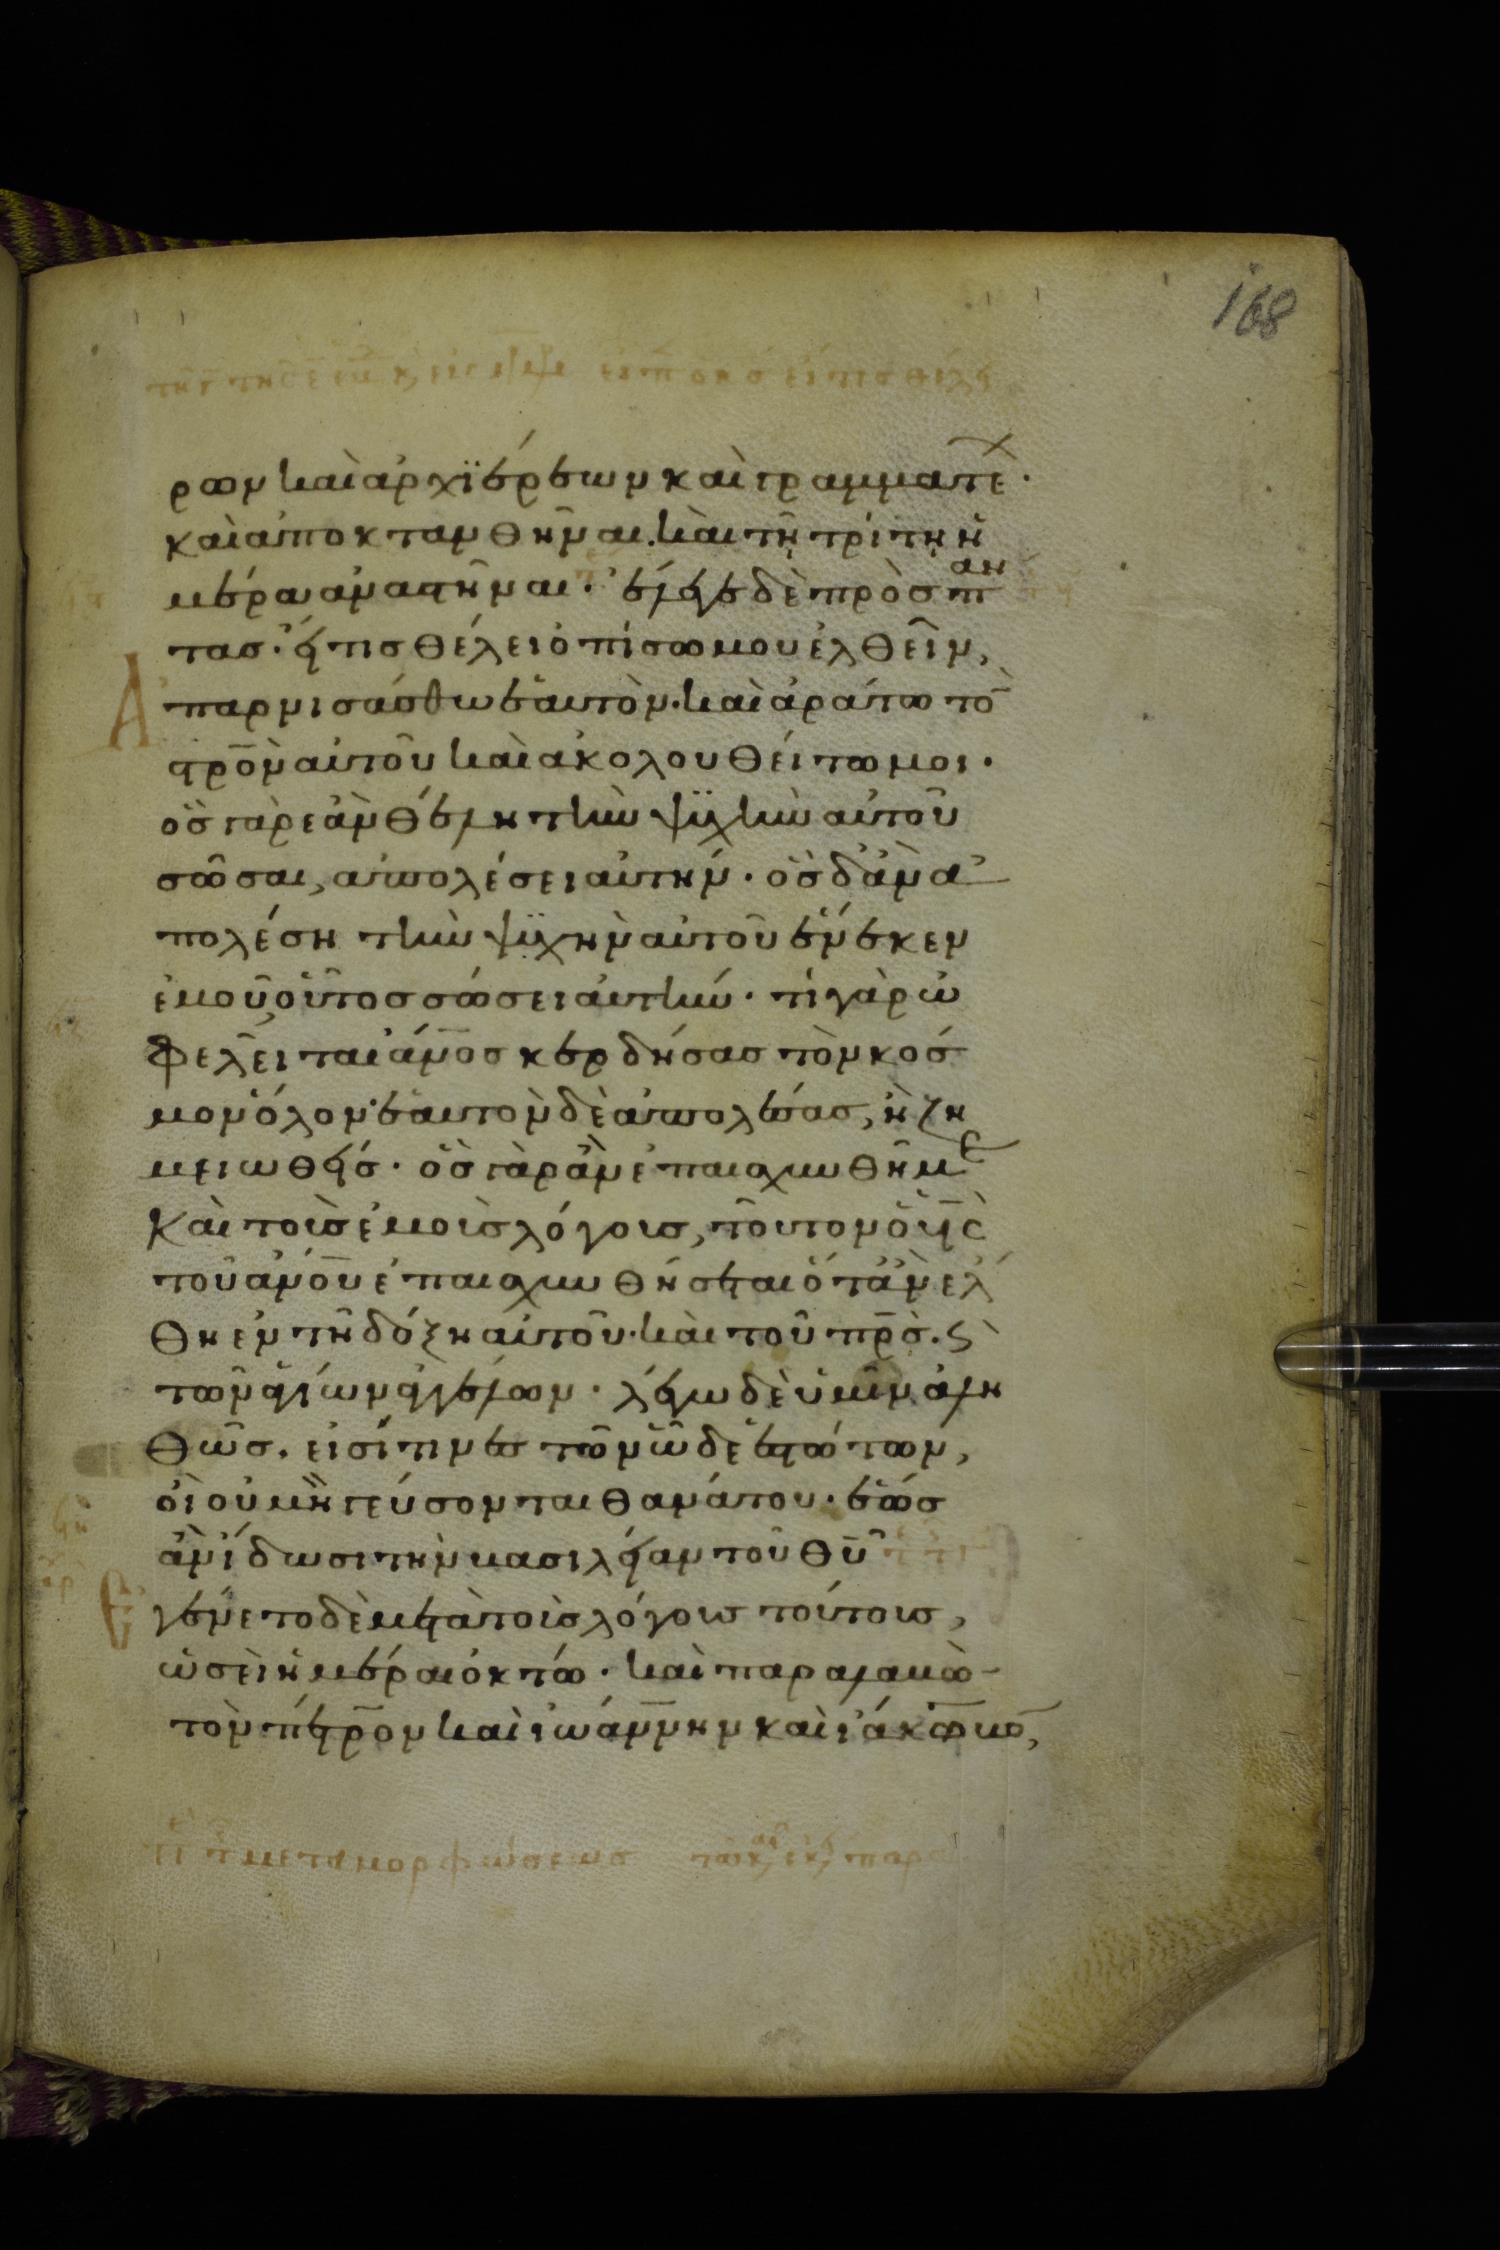 168
ρων καὶ ἀρχϊερέων καὶ γραμματε·
καὶ ἀποκτανθῆναι. καὶ τῇ τρίτῃ ἡ
μέρα ἀναστῆναι· ἔλεγε δὲ πρὸς πᾱ
τας· εἴ τις θέλει ὀπίσω μου ἐλθεῖν,
Ἀπαρνισάσθω ἑαυτὸν. καὶ ἀράτω τὸ̄
στρο̄ν αὐτοῦ καὶ ἀκολουθείτω μοι.
ὃς γὰρ ἐὰν θέλη τὴν ψϋχὴν αὐτοῦ
σῶσαι, ἀπολέσει αὐτήν. ὃς δ' ἂν ἀ
πολέση τὴν ψϋχὴν αὐτοῦ ἕνεκεν
ἐμοῦ, οὗτος σώσει αὐτήν. τί γὰρ ὠ
φελεῖται ἄν̄ος κερδήσας τὸν κόσ
μον ὅλον· ἑαυτὸν δὲ ἀπολέσας, ἢ ζη
μειωθείς. ὃς γὰρ ἂν ἐπαισχυνθῆ με
καὶ τοὺς ἐμοὺς λόγους, τοῦτον ὁ ϋ̄ς
τοῦ ἀν̄ου ἐπαισχυνθήσεται ὅταν ἔλ
θη ἐν τῆ δόξη αὐτοῦ. καὶ τοῦ πρ̄ς. ϗ
τῶν ἁγίων ἀγγέλων. λέγω δὲ ὑμῖν ἀλη
θῶς. εἰσί τινες τῶν ὧδε ἑστώτων,
οἳ οὐ μὴ γεύσονται θανάτου. ἕως
ἂν ἴδωσι τὴν βασιλείαν τοῦ θῡ
Ἐγένετο δὲ μετὰ τοὺς λόγους τούτους,
ὡσεὶ ἡμέραι ὀκτώ. καὶ παραλαβὼ
τὸν πέτρον καὶ ἰωάννην καὶ ἰάκωβο̄,
τ μεταμορφώσεως